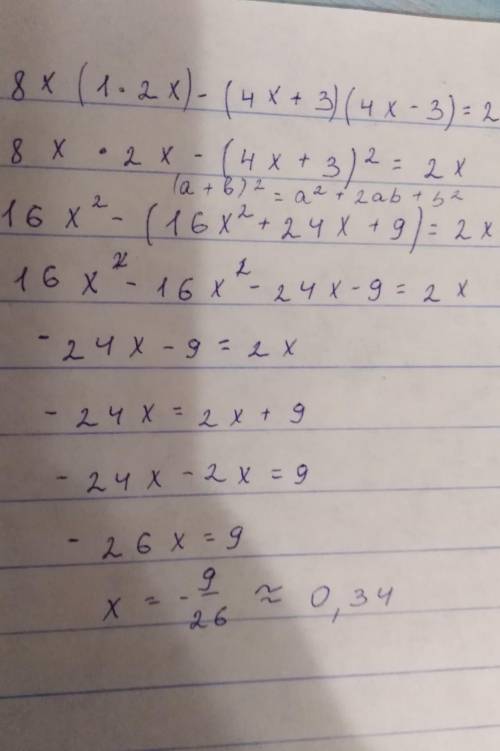 8x(1·2x)-(4x+3)(4x-3)=2
8x·2x-(4x+3)²=2x
(a+b)²=a²+2ab+b²
16x²-(16x²+24x+9)=2x
16x²-16x²-24x-9=2x
-24x-9=2x
-24x=2x+9
-24x-2x=9
-26x=9
x=-9/26≈0,34